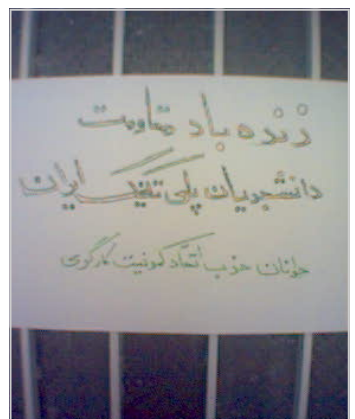 زنده باد مقاومت
دانشجویان پلی تکنیک ایران
جوانان حزب اتحاد کمونیست کارگری